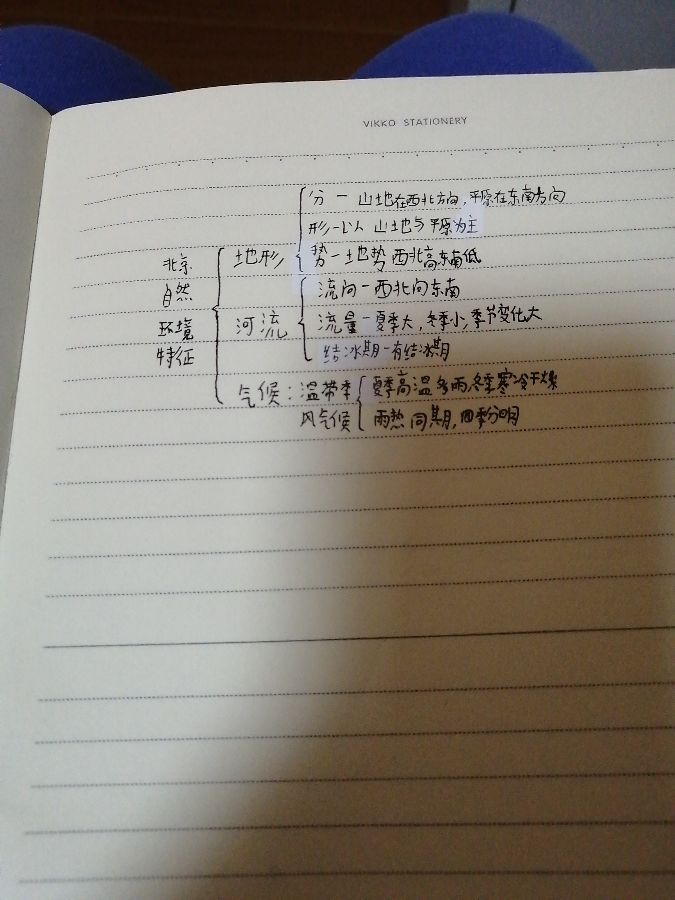 VIKKO STATIONERY
北京自然环境特征
地形
分一山地在西北方向,平原在东南方向
形一以山地与平原为主
势一地势西北高东南低
河流
流向一西北向东南
流量一夏季大,冬季小,季节变化大
结冰期一有结冰期
气候:温带季风气候
夏季高温多雨,冬季寒冷干燥
雨热同期,四季分明